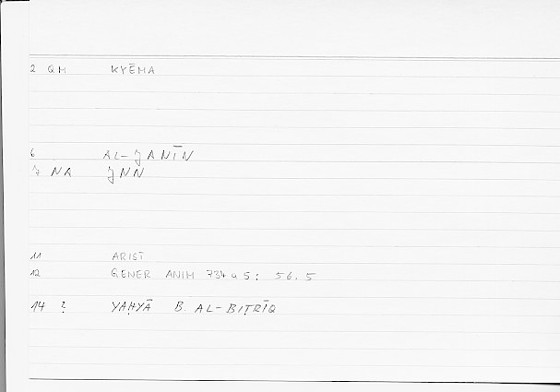 2 QM KYĒMA
6 AL-ǦANĪN
ǦNN
11 ARIST
12 GENER ANIM 56.5
14 ? YAḤYĀ B. AL-BIṬRĪQ